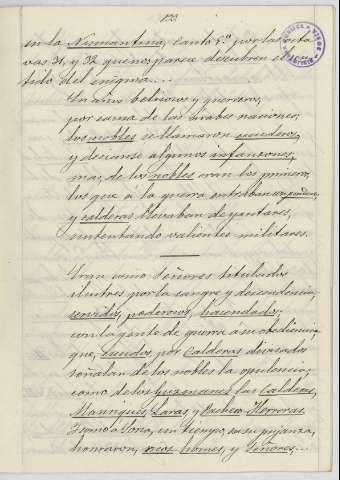 122
en la Numantina, Canto 5.º por las octa
vas 31, y 32 que nos parece descubren el sen
tido del enigma...
En años belicosos y guerreros,
por causa de las árabes naciones,
los nobles se llamaron escuderos,
y decianse algunos infanzones,
mas, de los nobles eran los primeros,
los que á la guerra entraban con pendones,
y calderas llevaban de yantares,
sustentando valientes militares.
Eran como Señores titulados
ilustres por la sangre y descendencia,
servidos, poderosos, hacendados,
con la gente de guerra á su obediencia,
que, por Calderas divisados
señalan de los nobles la opulencia,
como de los Guzmanes las Calderas,
Manriques, Laras y Pacheco Herreras.
Y como a Soria, un tiempo, en su pujanza,
honraron, ricos homes, y Señores...